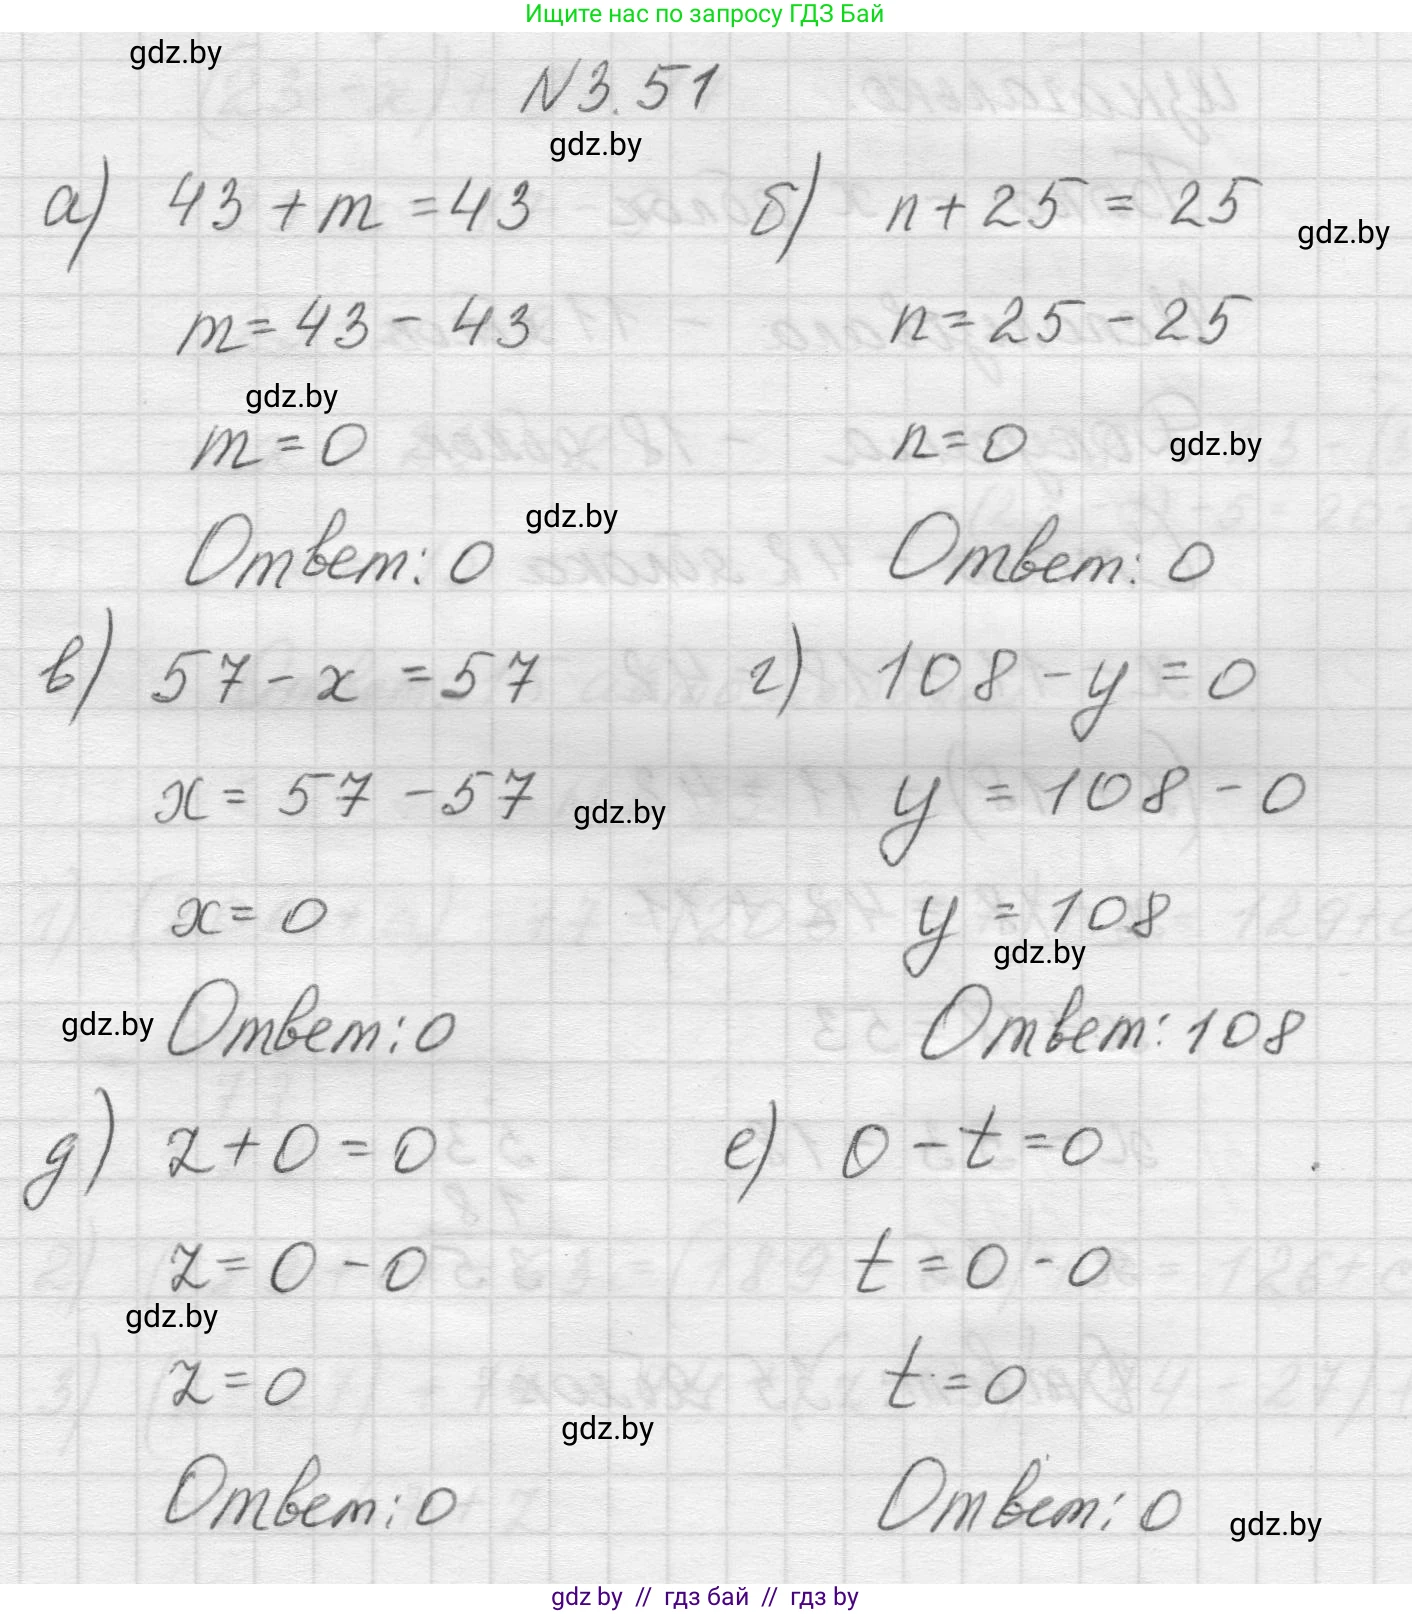 Ищите нас по запросу ГДЗ Бай
gdz.by
N 3.51
gdz.by
а) 43 + m = 43
б) n + 25 = 25
gdz.by
m = 43 - 43
n = 25 - 25
gdz.by
m = 0
n = 0
gdz.by
gdz.by
Ответ: 0
Ответ: 0
в) 57 - x = 57
г) 108 - y = 0
x = 57 - 57
y = 108 - 0
gdz.by
x = 0
y = 108
gdz.by
gdz.by
Ответ: 0
Ответ: 108
д) z + 0 = 0
е) 0 - t = 0
z = 0 - 0
t = 0 - 0
gdz.by
z = 0
t = 0
gdz.by
Ответ: 0
Ответ: 0
gdz.by
gdz by // гдз бай // гдз by